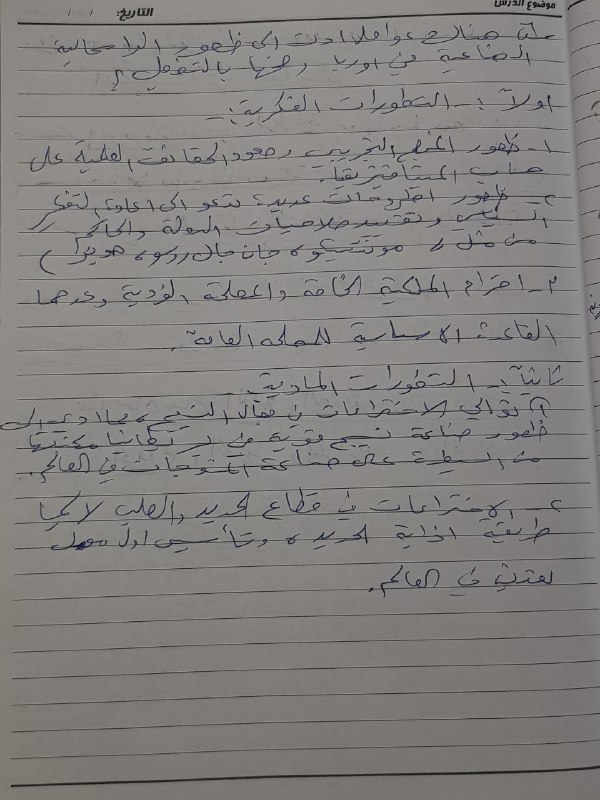 موضوع الدرس
التاريخ: / /
هناك عوامل ادت الى ظهور الرأسمالية
الصناعية في اوربا وضحها بالتفصيل؟
اولاً :- التطورات الفكرية :-
١- ظهور المنهج التجريبي وصعود الحقائق العلمية على
حساب الميتافيزيقيا.
٢- ظهور اطروحات عديدة تدعو الى اعادة التفكير
السياسي وتقييد صلاحيات الدولة والحاكم
من مثل ( مونتسكيو، جان جاك روسو،
٣- احترام الملكية الخاصة والمصلحة الفردية وعدهما
القاعدة الاساسية للمصلحة العامة.
ثانياً :- التطورات المادية
١- توالي الاختراعات في مجال النسيج، مما ادى الى
ظهور صناعة نسيج قوية في بريطانيا مكنتها
من السيطرة على صناعة المنسوجات في العالم.
٢- الاختراعات في قطاع الحديد والصلب لا
طريقة اذابة الحديد، وتأسيس اول معمل
في العالم.